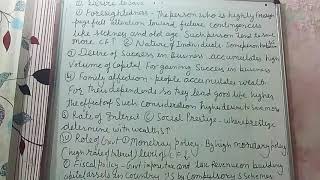 ① Desire to save
② Foresightedness - The person who is highly
pay full attention toward future contingencies
like sickness and old age. Such person tend to save
more CF↑ ③ Nature of Individuals -
④ Desire of Success in Business - accumulates high
Volume of Capital for gaining Success in business
⑤ Family affection - people accumulate wealth
for their dependents so they lead good life higher
the effect of such consideration higher desire to save more
⑥ Rate of Interest ⑦ Social Prestige - where prestige
determine with wealth S↑
Role of Govt ① Monetary policy - By high monetary policy
(high rate of ) level of C.F ↓
② Fiscal Policy - Govt impose tax and use Revenue on building
capital assets in country by Compulsory S Schemes